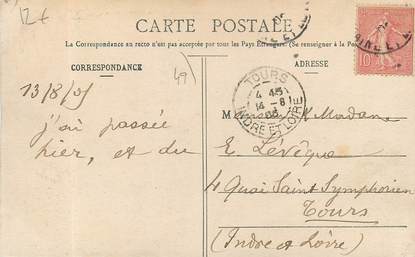 12 €
CARTE POSTALE
La Correspondance au recto n'est pas acceptée par tous les Pays Étrangers. (Se renseigner à la Poste
CORRESPONDANCE
ADRESSE
49
10
TOURS
4 45
14 -8
05
INDRE ET LOIRE
13/8/05
j'ai passée
hier, et du
M Madame
E. Lévêque
4 Quai Saint Symphorien
Tours
(Indre et Loire)